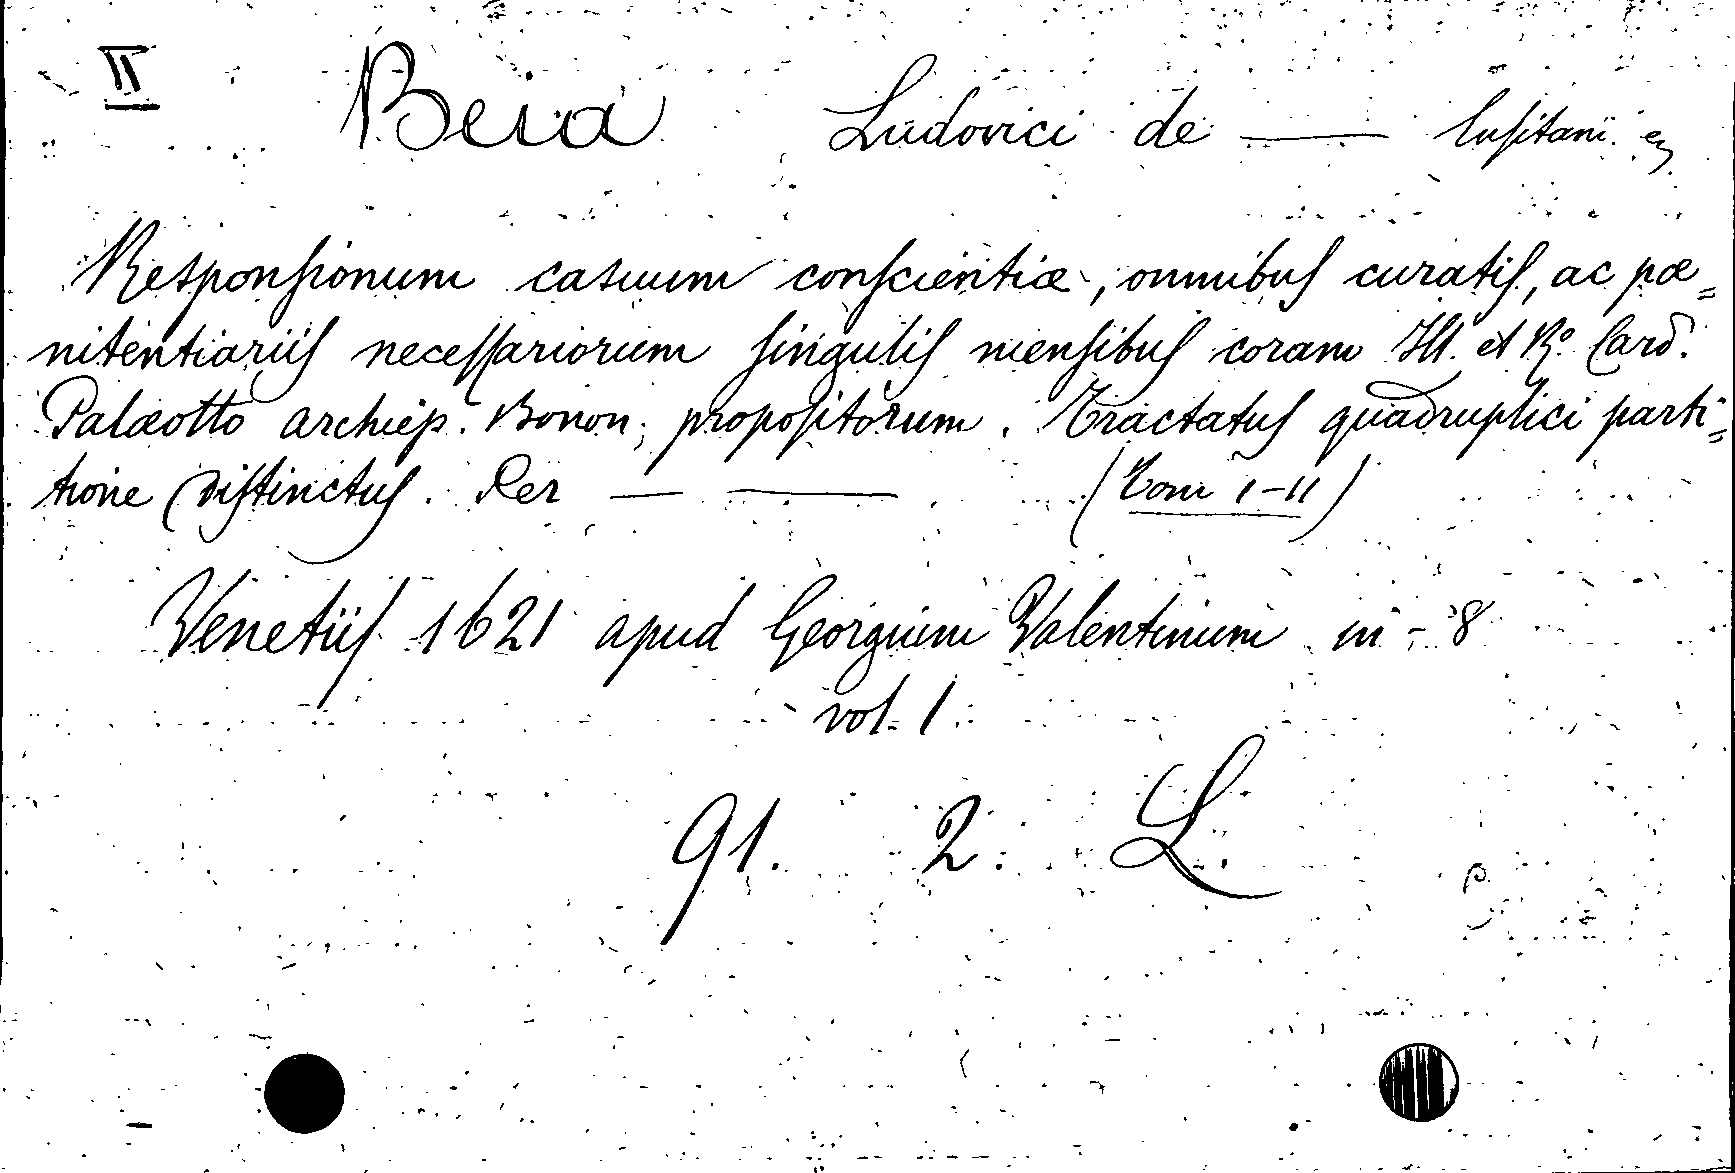 II Beia Ludovici de — lusitani
Responsionum casuum conscientiæ, omnibus curatis, ac pœ=
nitentiariis necessariorum singulis mensibus coram Ill. et R.º Card.
Palæotto archiep. Bonon; propositorum. Tractatus quadruplici parti=
tione distinctus. Per — — (Tom I-II)
Venetiis 1621 apud Georgium Valentinum in-8
vol. 1
91. 2. L.